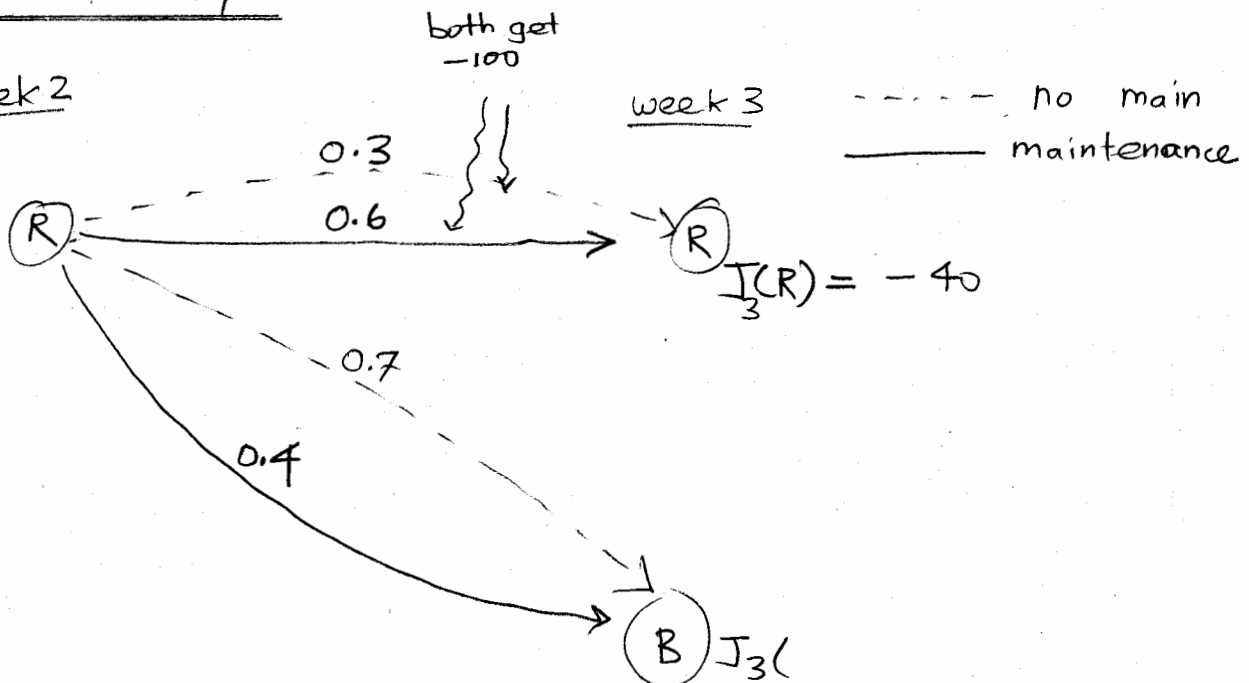 both get
-100
ek 2
week 3
no main
maintenance
0.3
0.6
R
R
J3(R) = - 40
0.7
0.4
B
J3(